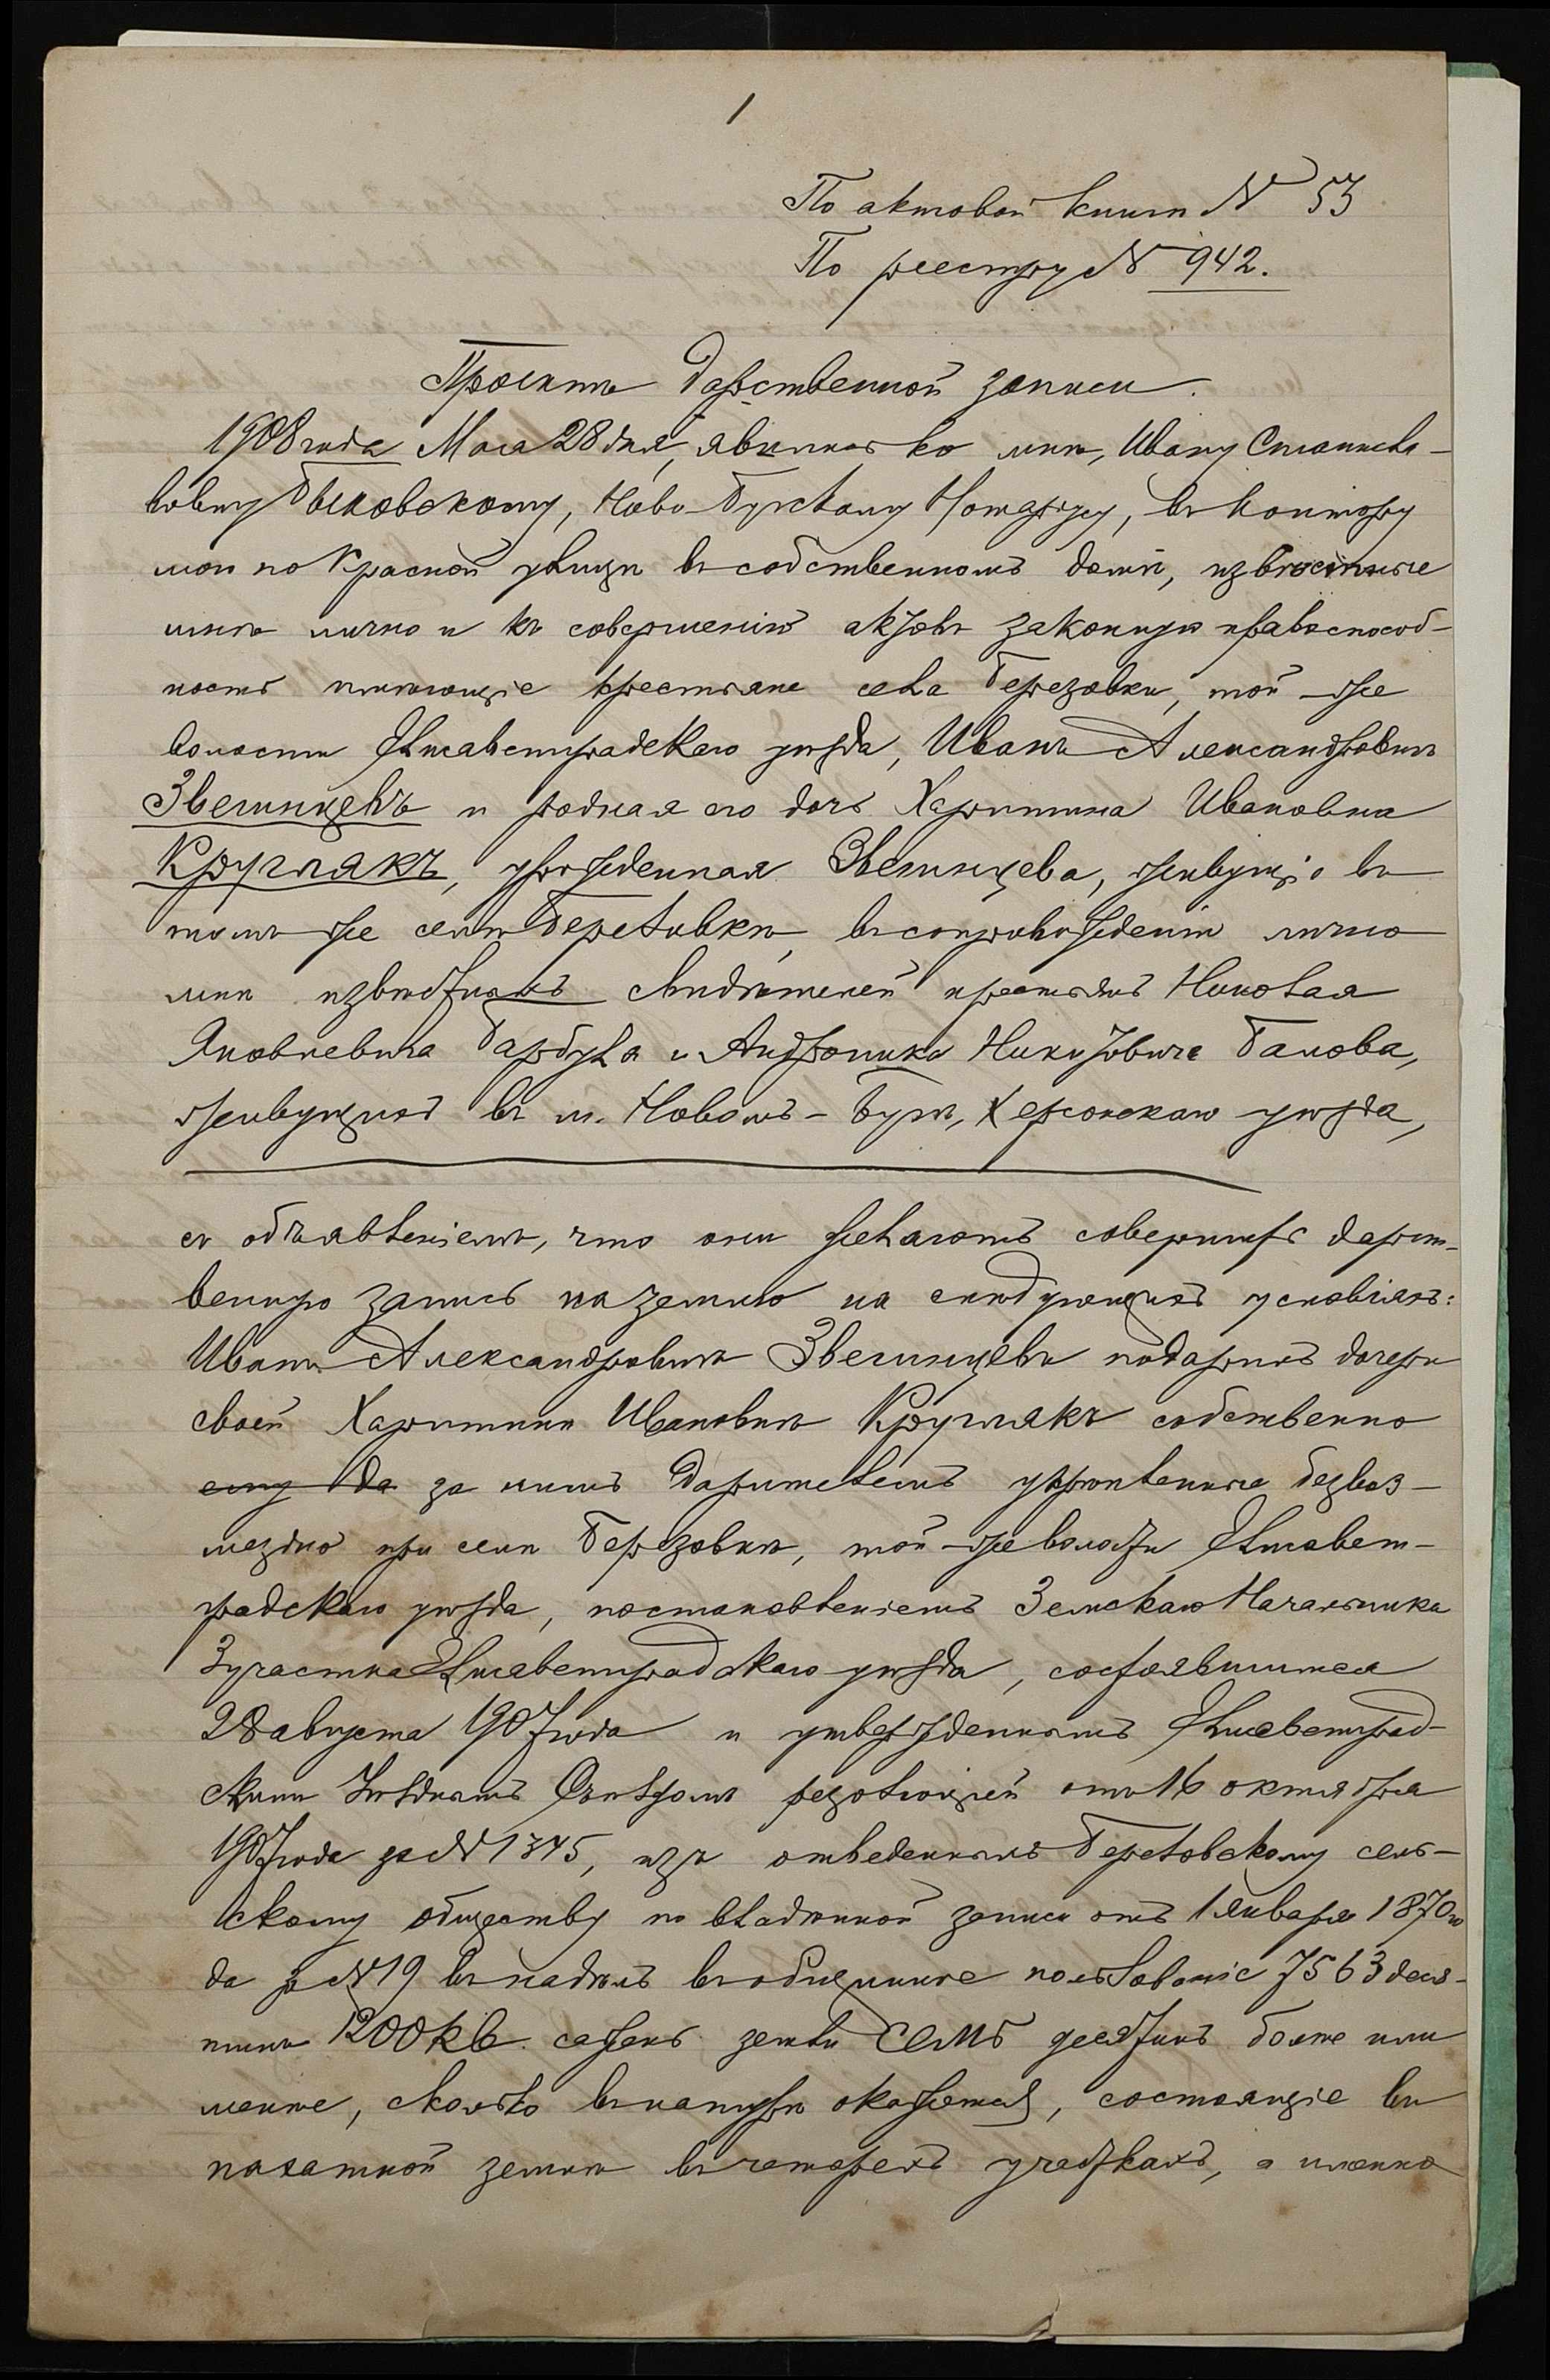 1
По актовой книгѣ N 53
По реестру N 942.
Проектъ дарственной записи.
1908 года Мая 28 дня, явились ко мнѣ, Ивану Станисла-
вовичу Быковскому, Ново-Бугскому Нотаріусу, въ контору
мою по Красной улицѣ въ собственномъ домѣ, извѣстные
мнѣ лично и къ совершенію актовъ законную правоспособ-
ность имѣющіе крестьяне села Березовки, той-же
волости Елисаветградскаго уѣзда, Иванъ Александровичъ
Звегинцевъ и родная его дочь Харитина Ивановна
Кругликъ, урожденная Звегинцева, живущіе въ
томъ же селѣ Березовкѣ, въ сопровожденіи лично
мнѣ извѣстныхъ свидѣтелей крестьянъ Николая
Яковлевича Барбула и Андроника Никитовича Банова,
живущихъ въ м. Новомъ-Бугѣ, Херсонскаго уѣзда,
съ объявленіемъ, что они желаютъ совершить дарст-
венную запись на землю на слѣдующихъ условіяхъ:
Иванъ Александровичъ Звегинцевъ подарилъ дочери
своей Харитинѣ Ивановнѣ Кругликъ собственно
ему да за нимъ дарителемъ укрѣпленные безвоз-
мездно при селѣ Березовкѣ, той-же волости Елисавет-
градскаго уѣзда, постановленіемъ Земскаго Начальника
3 участка Елисаветградскаго уѣзда, состоявшимся
28 августа 1907 года и утвержденнымъ Елисаветград-
скимъ Уѣзднымъ Съѣздомъ резолюціей отъ 16 октября
1907 года за N 1345, изъ отведенныхъ Березовскому сель-
скому обществу по владѣнной записи отъ 1 января 1870 го
да за N 19 въ надѣлъ въ общинное пользованіе 7563 деся-
тинъ 1200 кв. сажень земли семь десятинъ болѣе или
менѣе, сколько въ натурѣ окажется, состоящіе въ
пахатной землѣ въ четырехъ участкахъ, а именно